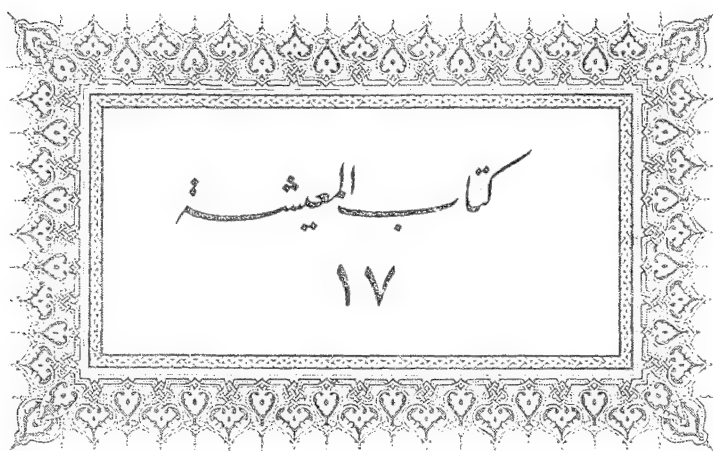 كتاب المعيشة
١٧